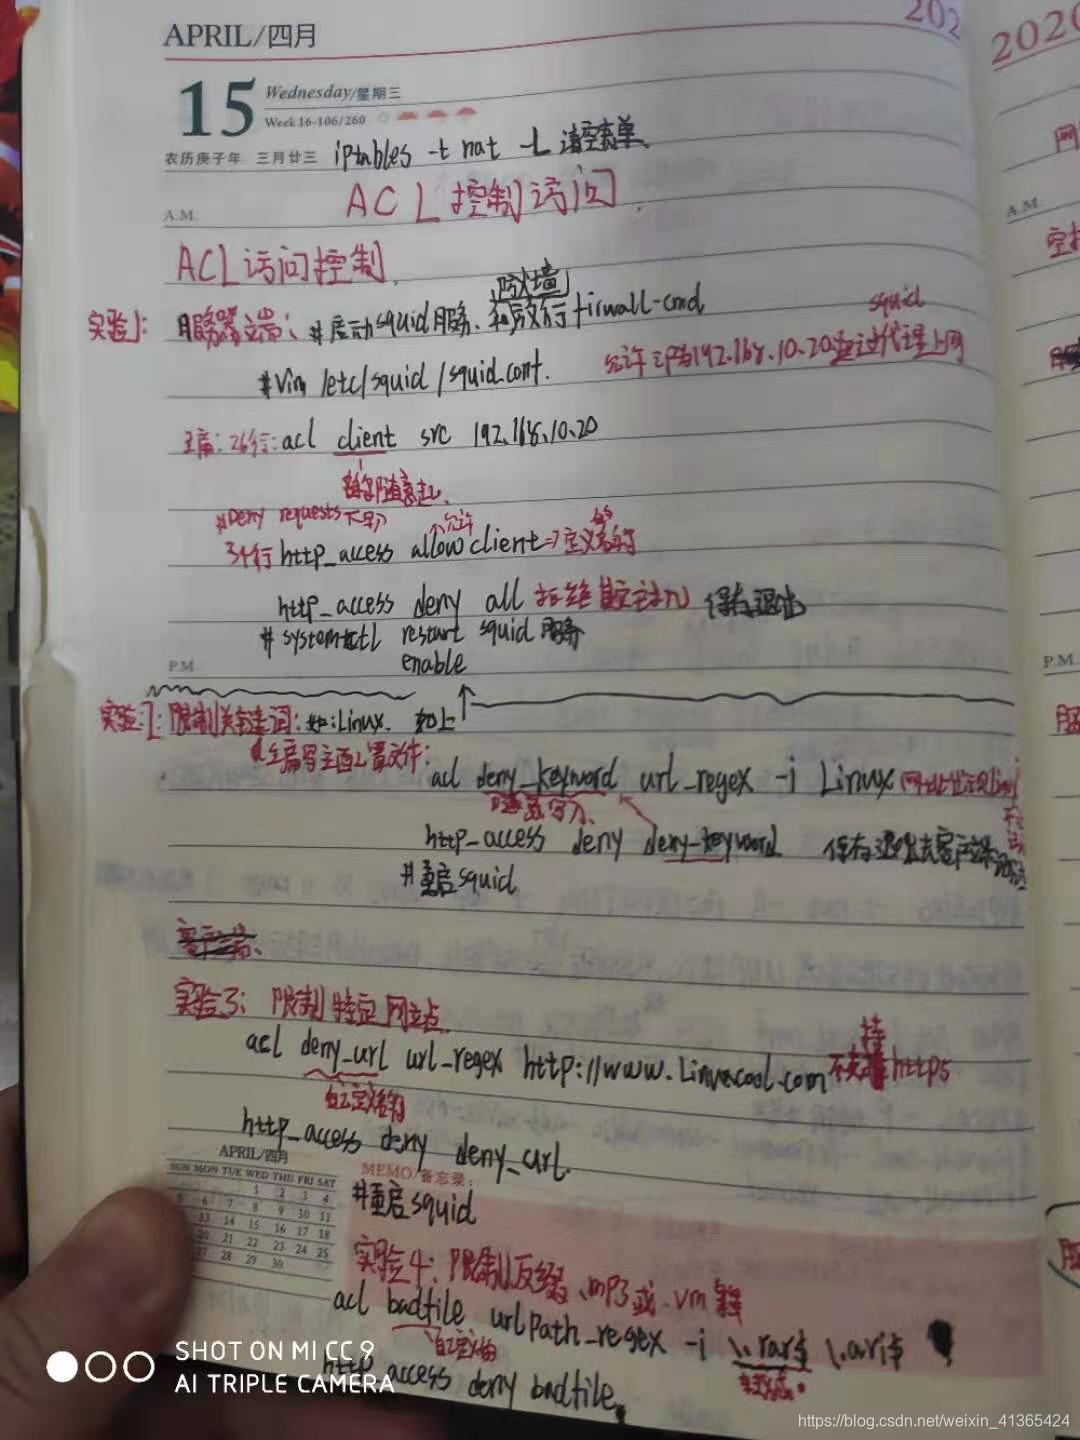 APRIL/四月
202
2020
15 Wednesday/星期三
Week 16-106/260
农历庚子年 三月廿三 iptables -t nat -L 清空表单、
ACL 控制访问
A.M.
A.M.
ACL 访问控制
防火墙
实验1: 服务器端: #启动squid服务、和放行firwall-cmd
squid
#Vim /etc/squid/squid.conf. 允许IP为192.168.10.20通过代理上网
26行: acl client src 192.168.10.20
#Deny requests
允许
34行 http_access allow client => 定义名称
http_access deny all 拒绝其它主机 保存退出
# systemctl restart squid 服务
enable
P.M.
P.M.
实验2: 限制关键词: 如:Linux. 如上
编写主配置文件:
acl deny_keyword url_regex -i Linux
http_access deny deny_keyword 保存退出去客户端测试
#重启squid
实验3: 限制特定网站
acl deny_url url_regex http://www.Linuxcool.com 不支持https
自定义名称
http_access deny deny_url.
APRIL/四月
SUN MON TUE WED THU FRI SAT
1 2 3 4
5 6 7 8 9 10 11
13 14 15 16 17 18
20 21 22 23 24 25
27 28 29 30
MEMO/备忘录:
#重启squid
实验4: 限制后缀、mp3或.vm
acl badfile urlpath_regex -i \.rar$ \.avi$
http_access deny badfile
SHOT ON MI CC 9
AI TRIPLE CAMERA
https://blog.csdn.net/weixin_41365424